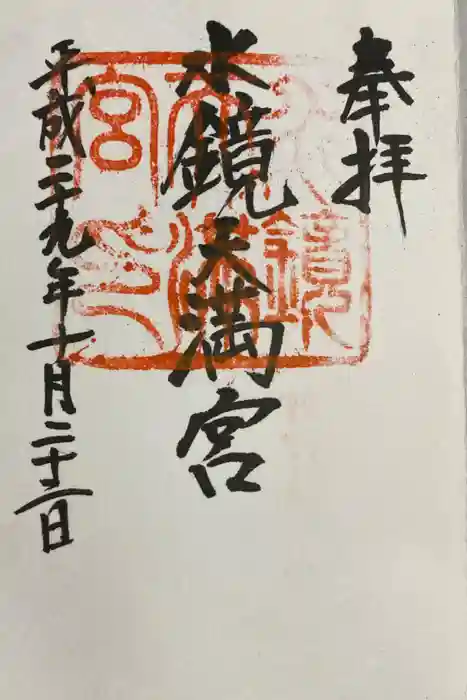 奉拝
水鏡天満宮
平成二十九年十月二十一日
水鏡
天満
宮